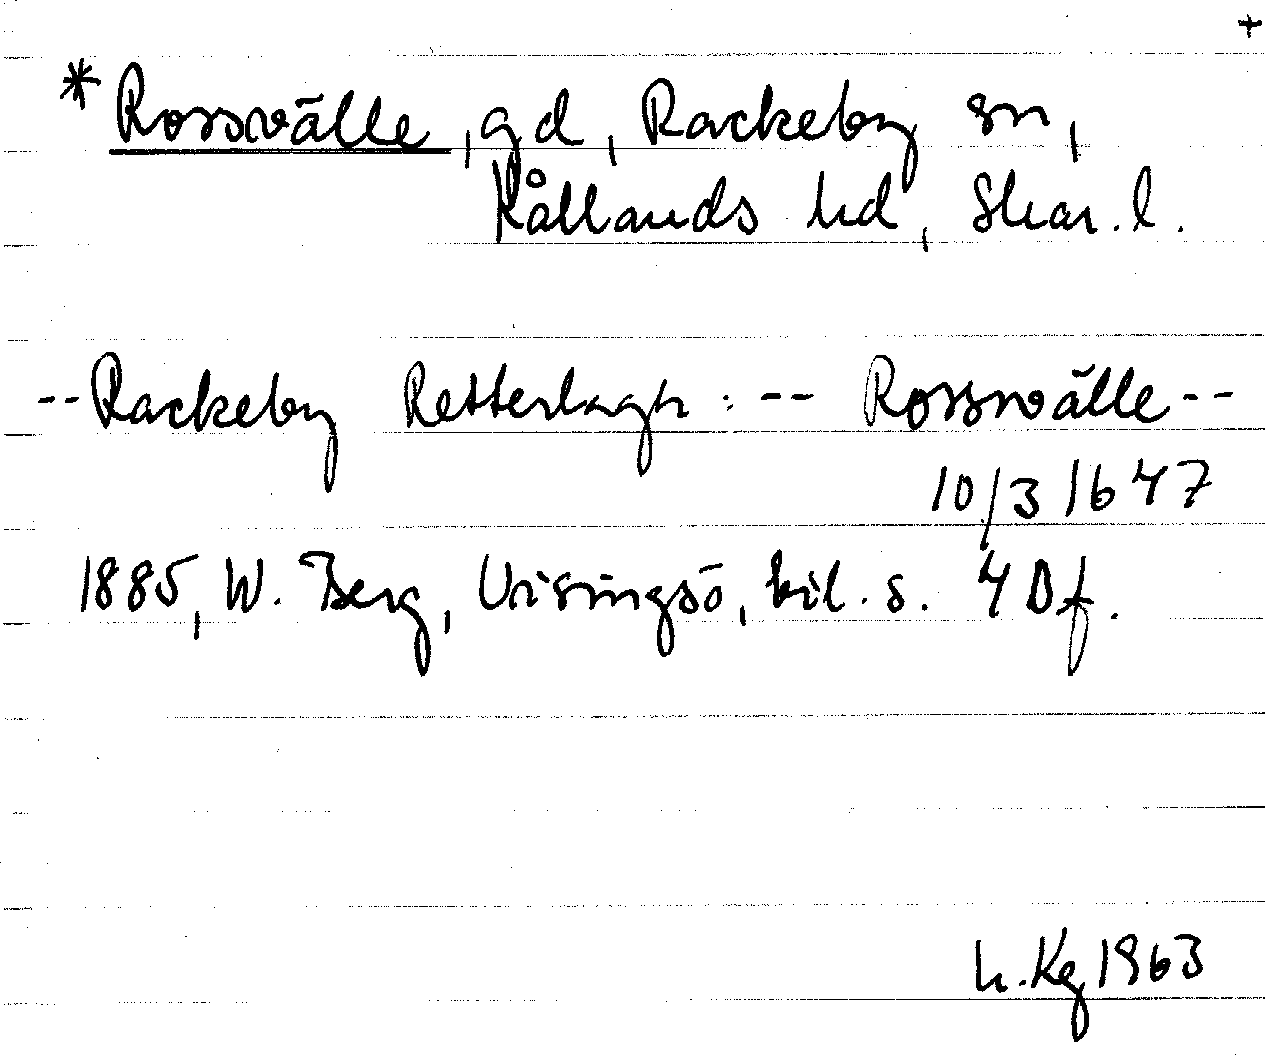 +
* Rossvälle, gd, Rackeby sn,
Kållands hd, Skar. l.
-- Rackeby Retterlagh: -- Rossvälle --
10/3 1647
1885, W. Berg, Visingsö, bil. s. 4 Df.
h. Kg 1963